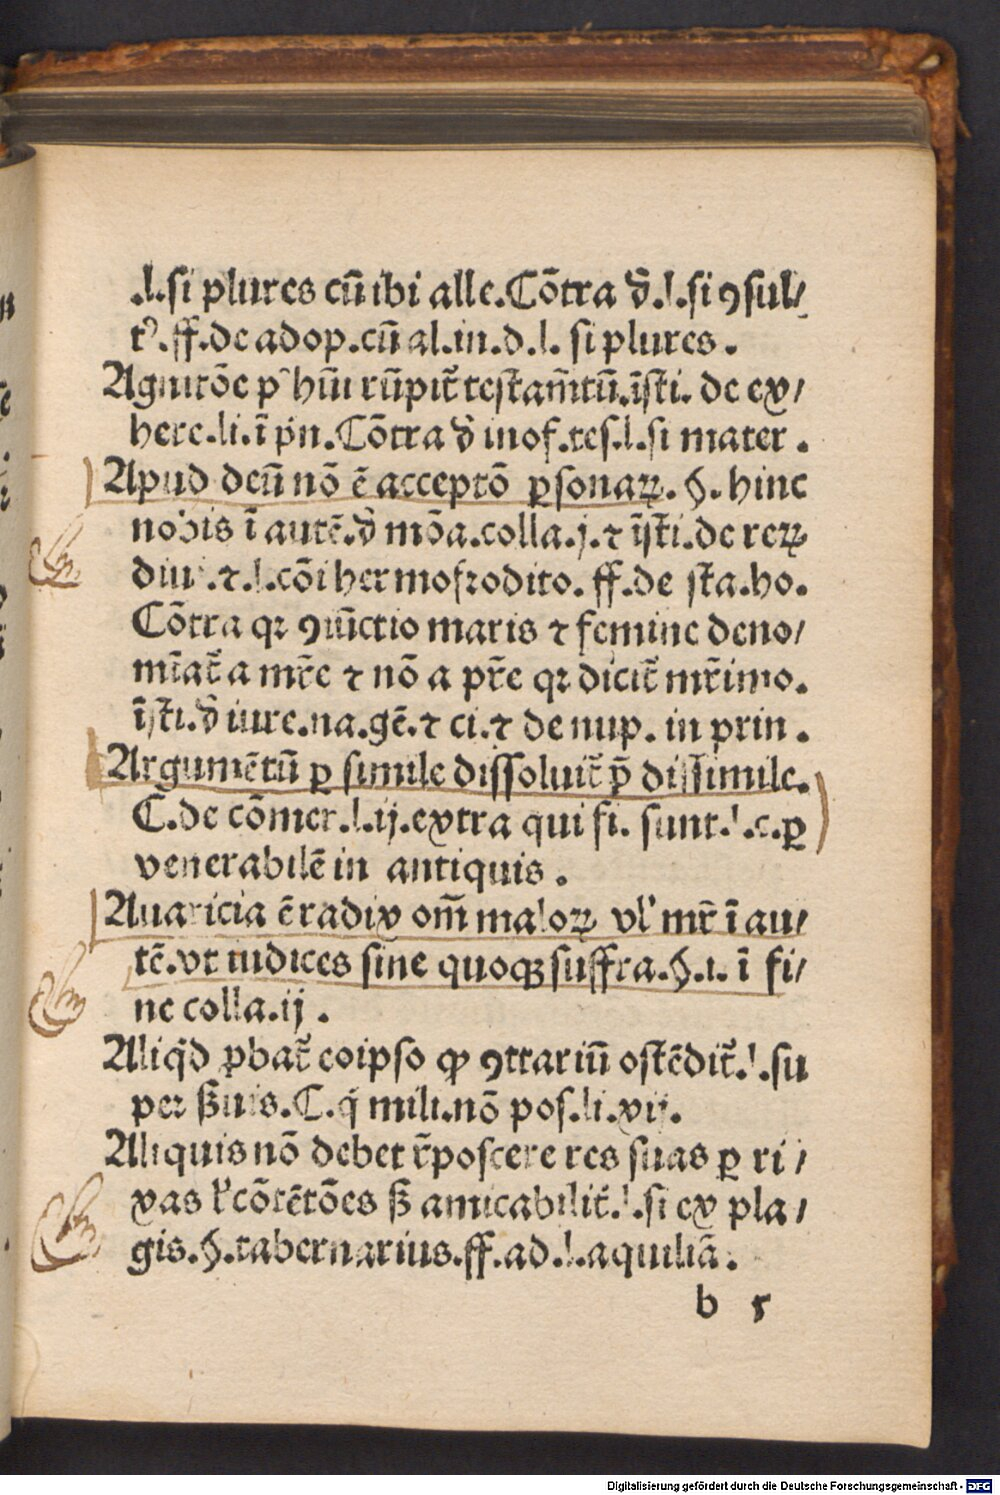 .l.si plures cū ibi alle.Cōtra ď.l.si ꝯsul/
t⁹.ff.de adop.cū al.in.d.l. si plures.
Agnitōe pꝰhūi rūpit̄ testam̄tū.īsti. de ex/
here.li.ī pn̄.Cōtra ď inof.tes.l.si mater.
Apud deū nō ē acceptō ꝑsonaꝝ.§.hinc
nobis ī autē.ď mōa.colla.j.⁊ īsti.de reꝝ
diui.⁊.l.cōi hermofrodito.ff.de sta.ho.
Cōtra qꝛ ꝯiūctio maris ⁊ femine deno/
mīat̄ a mr̄e ⁊ nō a pr̄e qꝛ dicit̄ mr̄imo.
īsti.ď iure.na.gē.⁊ ci.⁊ de nup. in prin.
Argumētū ꝑ simile dissoluit̄ p̄ dissimile.
C.de cōmer.l.ij.extra qui fi. sunt.l.c.ꝑ
venerabilē in antiquis.
Auaricia ē radix om̄ maloꝝ vl' mr̄ ī au/
tē.vt iudices sine quoqꝫ suffra.§.1. ī fi/
ne colla.ij.
Aliq̇d ꝓbat̄ eoipso qꝙ ꝯtrariū ostēdit̄.l.su
per ẞuis.C.q̇ mili.nō pos.li.xij.
Aliquis nō debet r̄poscere res suas ꝑ ri/
xas ł cōtētōes ẞ amicabilit̄.l.si ex pla/
gis.§.tabernarius.ff.ad.l.aquiliā.
b 5
Digitalisierung gefördert durch die Deutsche Forschungsgemeinschaft - DFG